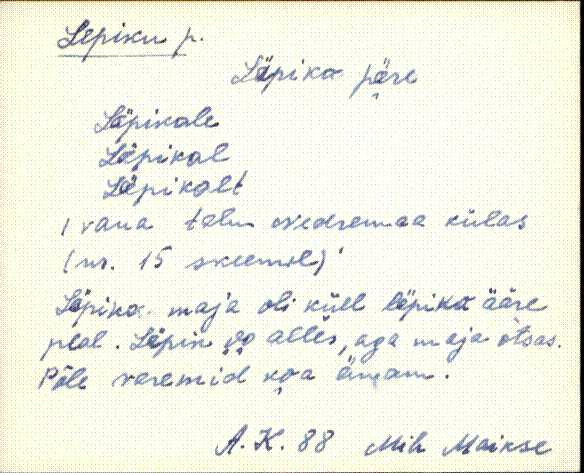 Lepiku p.
Läpika päre
Läpikale
Läpikal
Läpikalt
1 vana talu Vedremaa külas
(nr. 15 skeemil)
Läpika maja oli küll läpika ääre
peal. Läpik alles, aga maja otsas.
Põle varemid koa änam.
A.K. 88 Mih Maikse